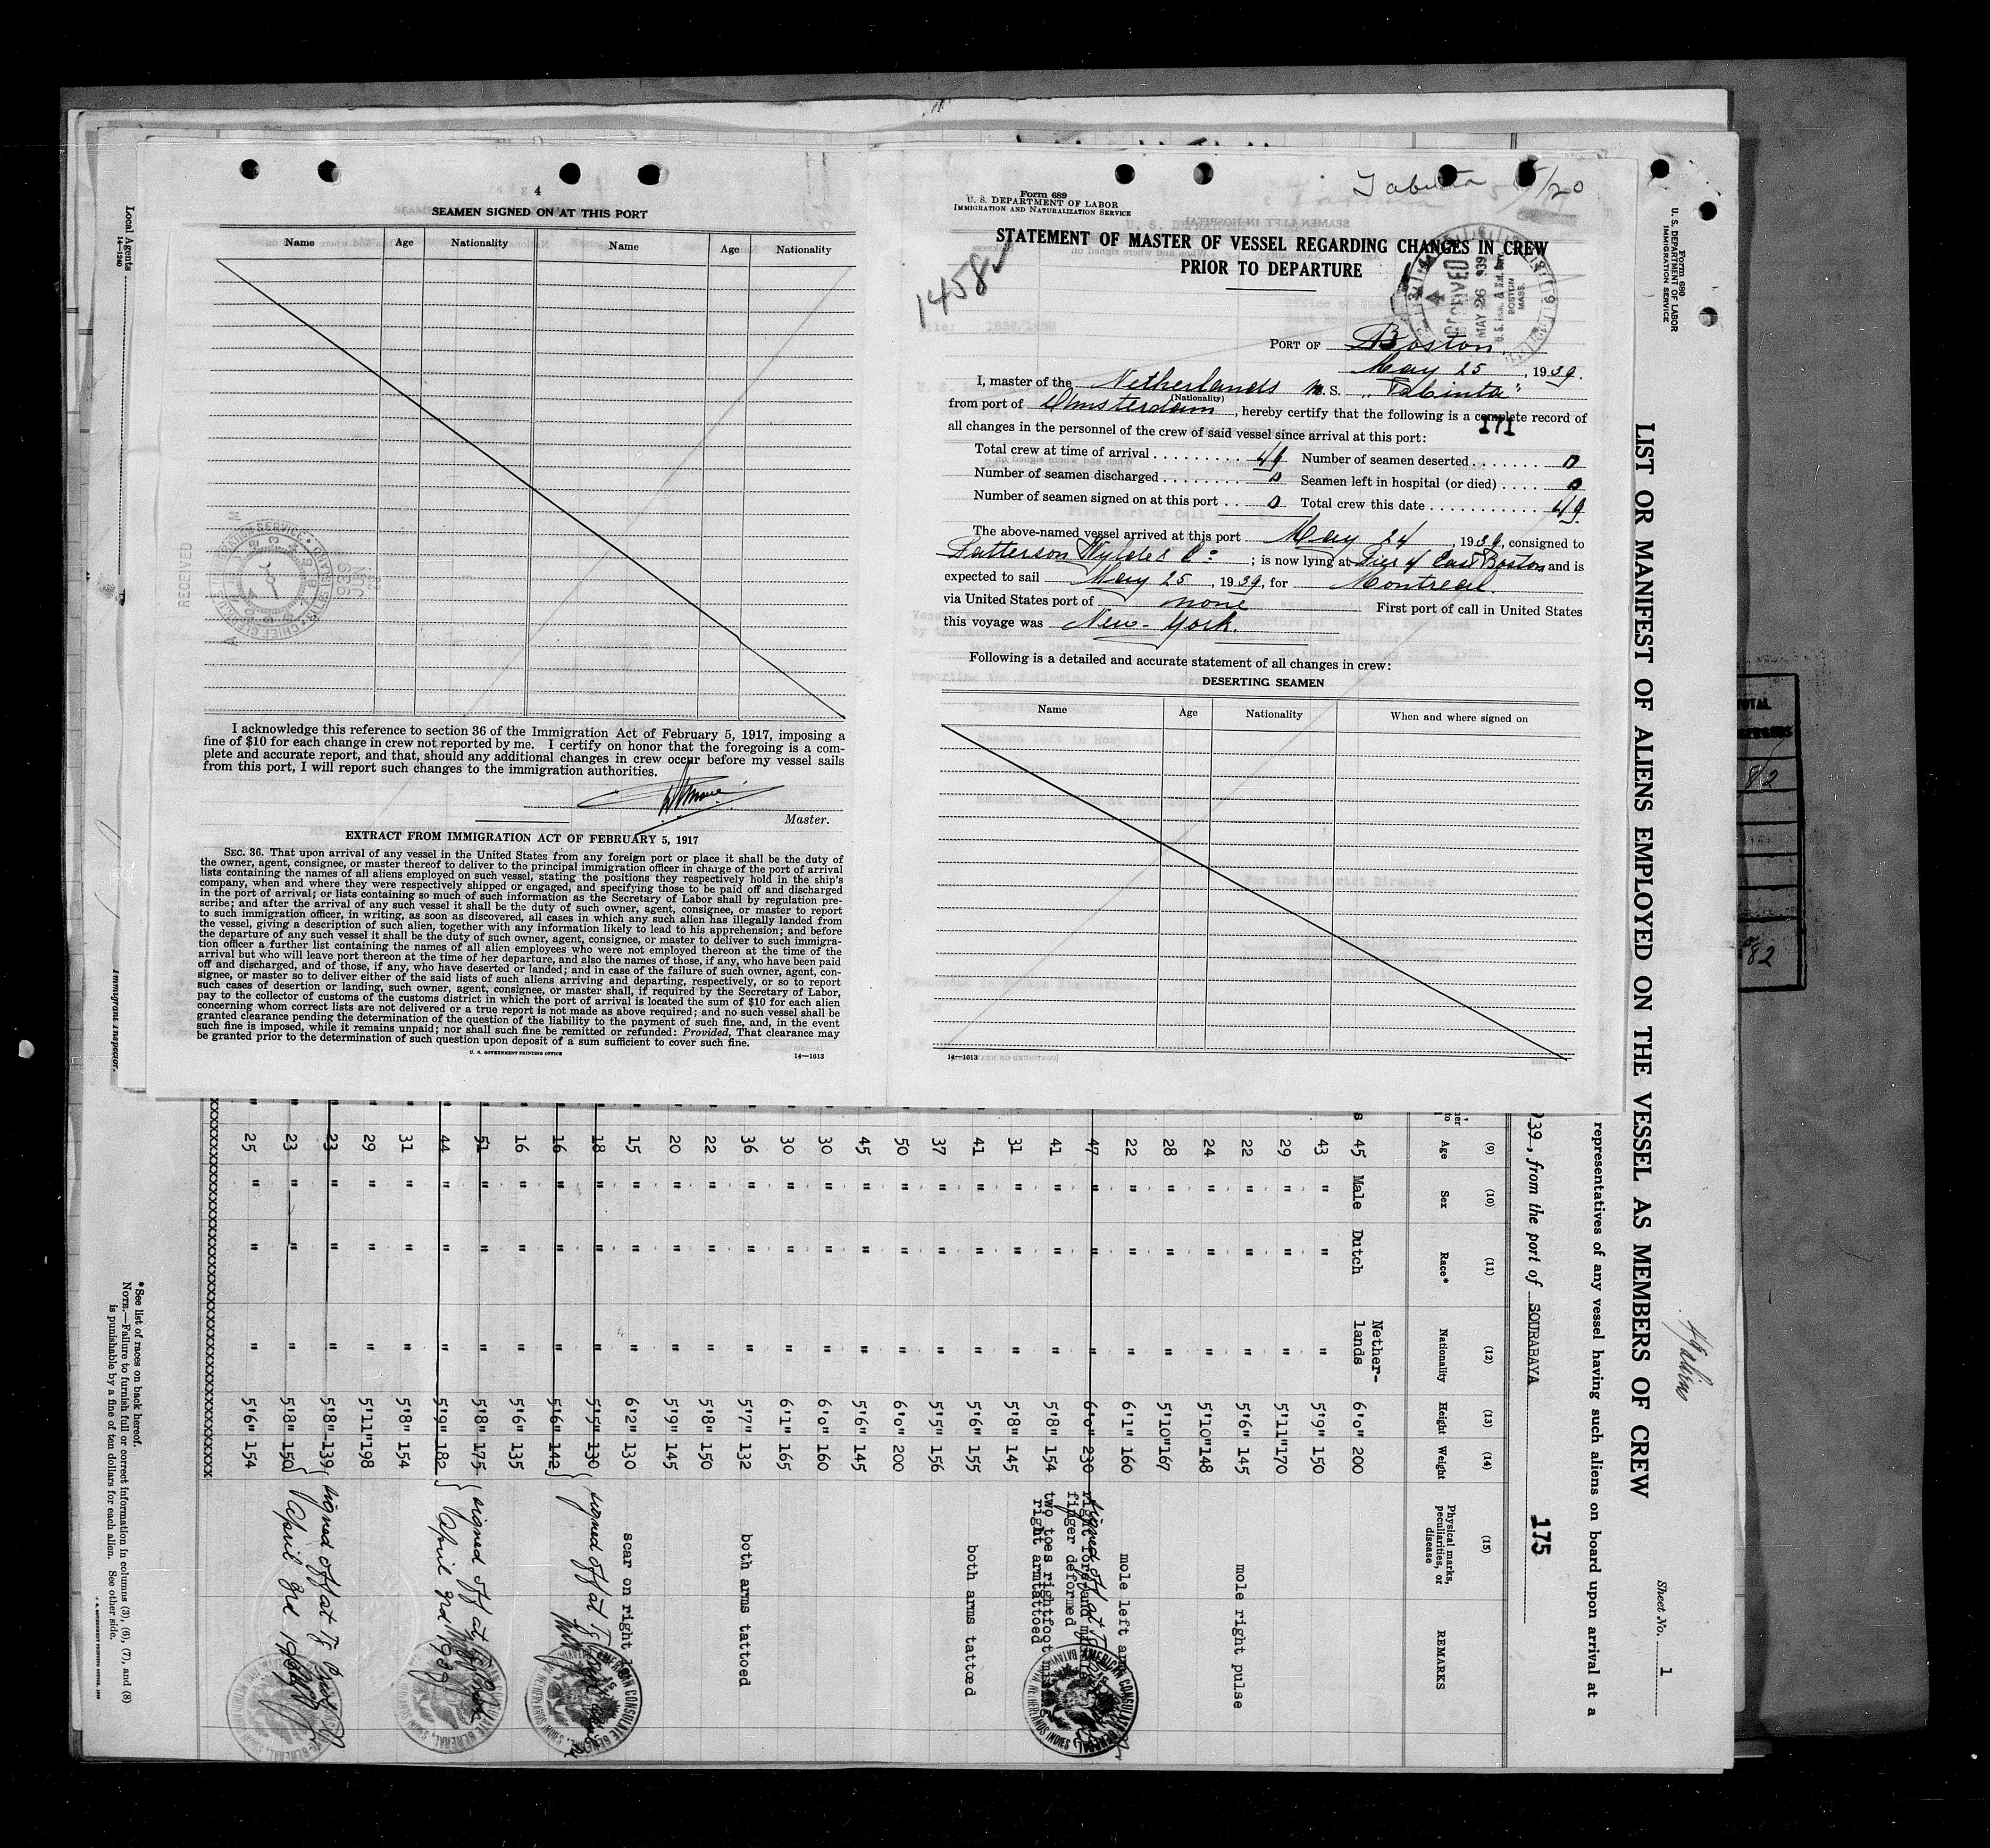 4
SEAMEN SIGNED ON AT THIS PORT
Name Age Nationality Name Age Nationality
I acknowledge this reference to section 36 of the Immigration Act of February 5, 1917, imposing a
fine of $10 for each change in crew not reported by me. I certify on honor that the foregoing is a com-
plete and accurate report, and that, should any additional changes in crew occur before my vessel sails
from this port, I will report such changes to the immigration authorities.
Master.
EXTRACT FROM IMMIGRATION ACT OF FEBRUARY 5, 1917
SEC. 36. That upon arrival of any vessel in the United States from any foreign port or place it shall be the duty of
the owner, agent, consignee, or master thereof to deliver to the principal immigration officer in charge of the port of arrival
lists containing the names of all aliens employed on such vessel, stating the positions they respectively hold in the ship's
company, when and where they were respectively shipped or engaged, and specifying those to be paid off and discharged
in the port of arrival; or lists containing so much of such information as the Secretary of Labor shall by regulation pre-
scribe; and after the arrival of any such vessel it shall be the duty of such owner, agent, consignee, or master to report
to such immigration officer, in writing, as soon as discovered, all cases in which any such alien has illegally landed from
the vessel, giving a description of such alien, together with any information likely to lead to his apprehension; and before
the departure of any such vessel it shall be the duty of such owner, agent, consignee, or master to deliver to such immigra-
tion officer a further list containing the names of all alien employees who were not employed thereon at the time of the
arrival but who will leave port thereon at the time of her departure, and also the names of those, if any, who have been paid
off and discharged, and of those, if any, who have deserted or landed; and in case of the failure of such owner, agent, con-
signee, or master so to deliver either of the said lists of such aliens arriving and departing, respectively, or so to report
such cases of desertion or landing, such owner, agent, consignee, or master shall, if required by the Secretary of Labor,
pay to the collector of customs of the customs district in which the port of arrival is located the sum of $10 for each alien
concerning whom correct lists are not delivered or a true report is not made as above required; and no such vessel shall be
granted clearance pending the determination of the question of the liability to the payment of such fine, and, in the event
such fine is imposed, while it remains unpaid; nor shall such fine be remitted or refunded: Provided, That clearance may
be granted prior to the determination of such question upon deposit of a sum sufficient to cover such fine.
U. S. GOVERNMENT PRINTING OFFICE 14—1613
Form 689
U. S. DEPARTMENT OF LABOR
IMMIGRATION AND NATURALIZATION SERVICE
Tabinta 5/20
STATEMENT OF MASTER OF VESSEL REGARDING CHANGES IN CREW
PRIOR TO DEPARTURE
1458
RECEIVED
MAY 26 1939
BOSTON
MASS.
PORT OF Boston
May 25, 1939.
I, master of the Netherlands M.S. "Tabinta"
(Nationality)
from port of Amsterdam, hereby certify that the following is a complete record of
171
all changes in the personnel of the crew of said vessel since arrival at this port:
Total crew at time of arrival 49 Number of seamen deserted 0
Number of seamen discharged 0 Seamen left in hospital (or died) 0
Number of seamen signed on at this port 0 Total crew this date 49
The above-named vessel arrived at this port May 24, 1939, consigned to
Patterson Wylde & Co; is now lying at Pier 4 East Boston and is
expected to sail May 25, 1939, for Montreal.
via United States port of none First port of call in United States
this voyage was New-York.
Following is a detailed and accurate statement of all changes in crew:
DESERTING SEAMEN
Name Age Nationality When and where signed on
14—1613
Form 680
U. S. DEPARTMENT OF LABOR
IMMIGRATION SERVICE
LIST OR MANIFEST OF ALIENS EMPLOYED ON THE VESSEL AS MEMBERS OF CREW
49 aliens
Sheet No. 1
representatives of any vessel having such aliens on board upon arrival at a
39, from the port of SOURABAYA 175
(9) (10) (11) (12) (13) (14) (15)
Age Sex Race* Nationality Height Weight Physical marks, peculiarities, or disease REMARKS
45 Male Dutch Nether-lands 6'0" 200
43 " " " 5'9" 150
29 " " " 5'11" 170
22 " " " 5'6" 145 mole right pulse
24 " " " 5'10" 148
28 " " " 5'10" 167
22 " " " 6'1" 160 mole left arm
47 " " " 6'0" 230 finger deformed
41 " " " 5'8" 154 two toes rightfoot
right armtattoed
31 " " " 5'8" 145
41 " " " 5'6" 155 both arms tattoed
37 " " " 5'5" 156
50 " " " 6'0" 200
45 " " " 5'6" 145
30 " " " 6'0" 160
30 " " " 6'1" 165
36 " " " 5'7" 132 both arms tattoed
22 " " " 5'8" 150
20 " " " 5'9" 145
15 " " " 6'2" 130 scar on right
18 " " " 5'5" 130 signed off at
16 " " " 5'6" 142
16 " " " 5'6" 135
51 " " " 5'8" 175 signed off at
44 " " " 5'9" 182 April 3rd 1939
31 " " " 5'8" 154
29 " " " 5'11" 198
23 " " " 5'8" 139 signed off at
23 " " " 5'8" 150 April 3rd 1939
25 " " " 5'6" 154
AMERICAN CONSULATE GENERAL
*See list of races on back hereof.
NOTE.—Failure to furnish full or correct information in columns (3), (6), (7), and (8)
is punishable by a fine of ten dollars for each alien. See other side.
Local Agents
14—1240
Immigrant Inspector.
RECEIVED
TOTAL
82
82